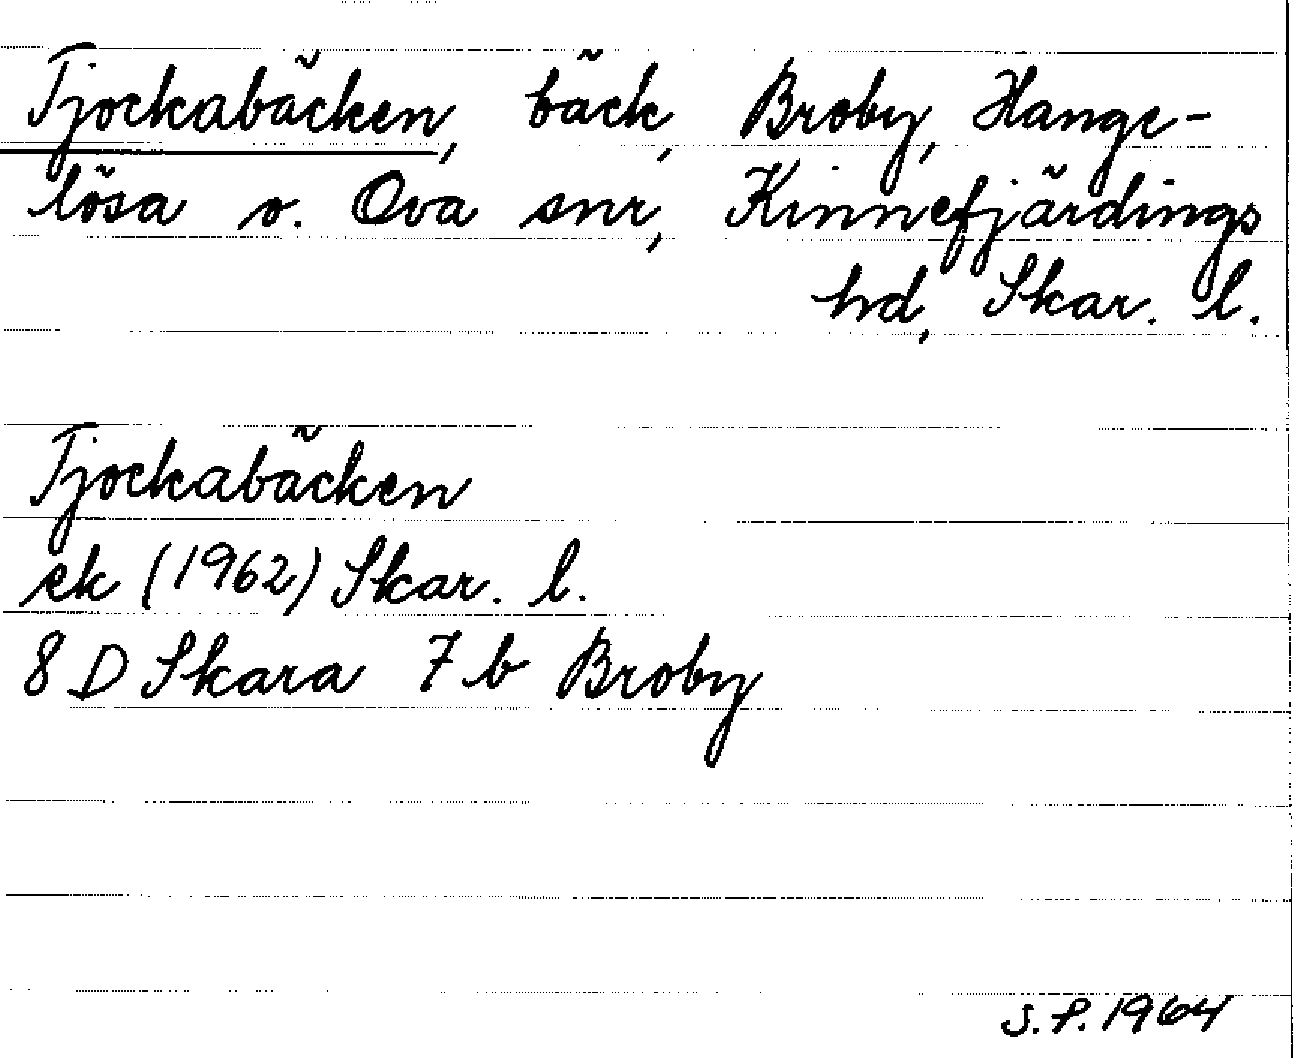 Tjockabäcken, bäck, Broby, Hange-
lösa o. Ova snr, Kinnefjärdings
hd, Skar. l.
Tjockabäcken
ek (1962) Skar. l.
8 D Skara 7 b Broby
S.P. 1964